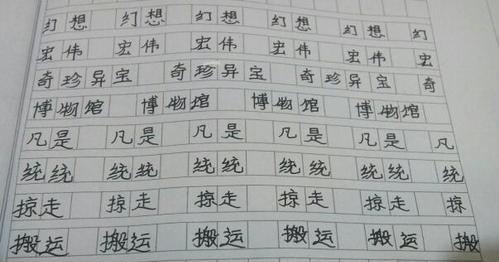 幻想 幻想 幻想 幻想 幻想 幻
宏伟 宏伟 宏伟 宏伟 宏伟 宏
奇珍异宝 奇珍异宝 奇珍异宝 奇
博物馆 博物馆 博物馆 博物馆
凡是 凡是 凡是 凡是 凡是 凡
统统 统统 统统 统统 统统 统
掠走 掠走 掠走 掠走 掠走 掠
搬运 搬运 搬运 搬运 搬运 搬